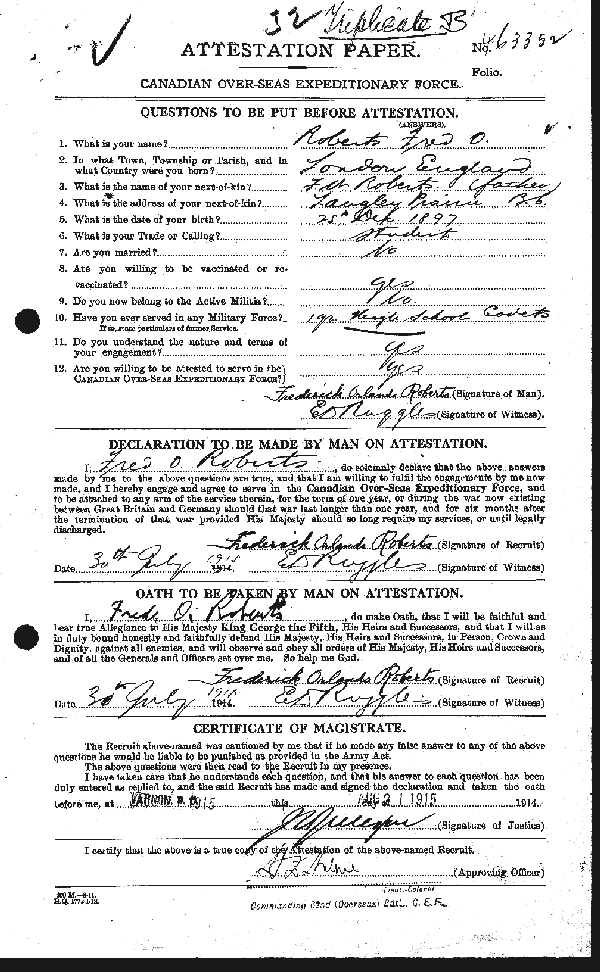 32 Triplicate B
ATTESTATION PAPER.
No. 463352
Folio.
CANADIAN OVER-SEAS EXPEDITIONARY FORCE.
QUESTIONS TO BE PUT BEFORE ATTESTATION.
(ANSWERS).
1. What is your name? Roberts Fred O.
2. In what Town, Township or Parish, and in
what Country were you born? London England
3. What is the name of your next-of-kin? Roberts (father)
4. What is the address of your next-of-kin? Langley Prairie B.C.
5. What is the date of your birth? 25th 1897
6. What is your Trade or Calling? Student
7. Are you married? No
8. Are you willing to be vaccinated or re-
vaccinated? yes
9. Do you now belong to the Active Militia? No
10. Have you ever served in any Military Force? 1 yr. High School Cadets
If so, state particulars of former Service.
11. Do you understand the nature and terms of
your engagement? yes
12. Are you willing to be attested to serve in the
CANADIAN OVER-SEAS EXPEDITIONARY FORCE? yes
Frederick Orlando Roberts (Signature of Man).
Ed Ruggles (Signature of Witness).
DECLARATION TO BE MADE BY MAN ON ATTESTATION.
I, Fred O Roberts, do solemnly declare that the above answers
made by me to the above questions are true, and that I am willing to fulfil the engagements by me now
made, and I hereby engage and agree to serve in the Canadian Over-Seas Expeditionary Force, and
to be attached to any arm of the service therein, for the term of one year, or during the war now existing
between Great Britain and Germany should that war last longer than one year, and for six months after
the termination of that war provided His Majesty should so long require my services, or until legally
discharged.
Frederick Orlando Roberts (Signature of Recruit)
Date 30th July 1914. Ed Ruggles (Signature of Witness)
OATH TO BE TAKEN BY MAN ON ATTESTATION.
I, Fred O. Roberts, do make Oath, that I will be faithful and
bear true Allegiance to His Majesty King George the Fifth, His Heirs and Successors, and that I will as
in duty bound honestly and faithfully defend His Majesty, His Heirs and Successors, in Person, Crown and
Dignity, against all enemies, and will observe and obey all orders of His Majesty, His Heirs and Successors,
and of all the Generals and Officers set over me. So help me God.
Frederick Orlando Roberts (Signature of Recruit)
Date 30th July 1914. Ed Ruggles (Signature of Witness)
CERTIFICATE OF MAGISTRATE.
The Recruit above-named was cautioned by me that if he made any false answer to any of the above
questions he would be liable to be punished as provided in the Army Act.
The above questions were then read to the Recruit in my presence.
I have taken care that he understands each question, and that his answer to each question has been
duly entered as replied to, and the said Recruit has made and signed the declaration and taken the oath
before me, at 1915 this AUG 21 1915 1914.
(Signature of Justice)
I certify that the above is a true copy of the Attestation of the above-named Recruit.
(Approving Officer)
Lieut.-Colonel
Commanding 62nd (Overseas) Batt. C. E. F.